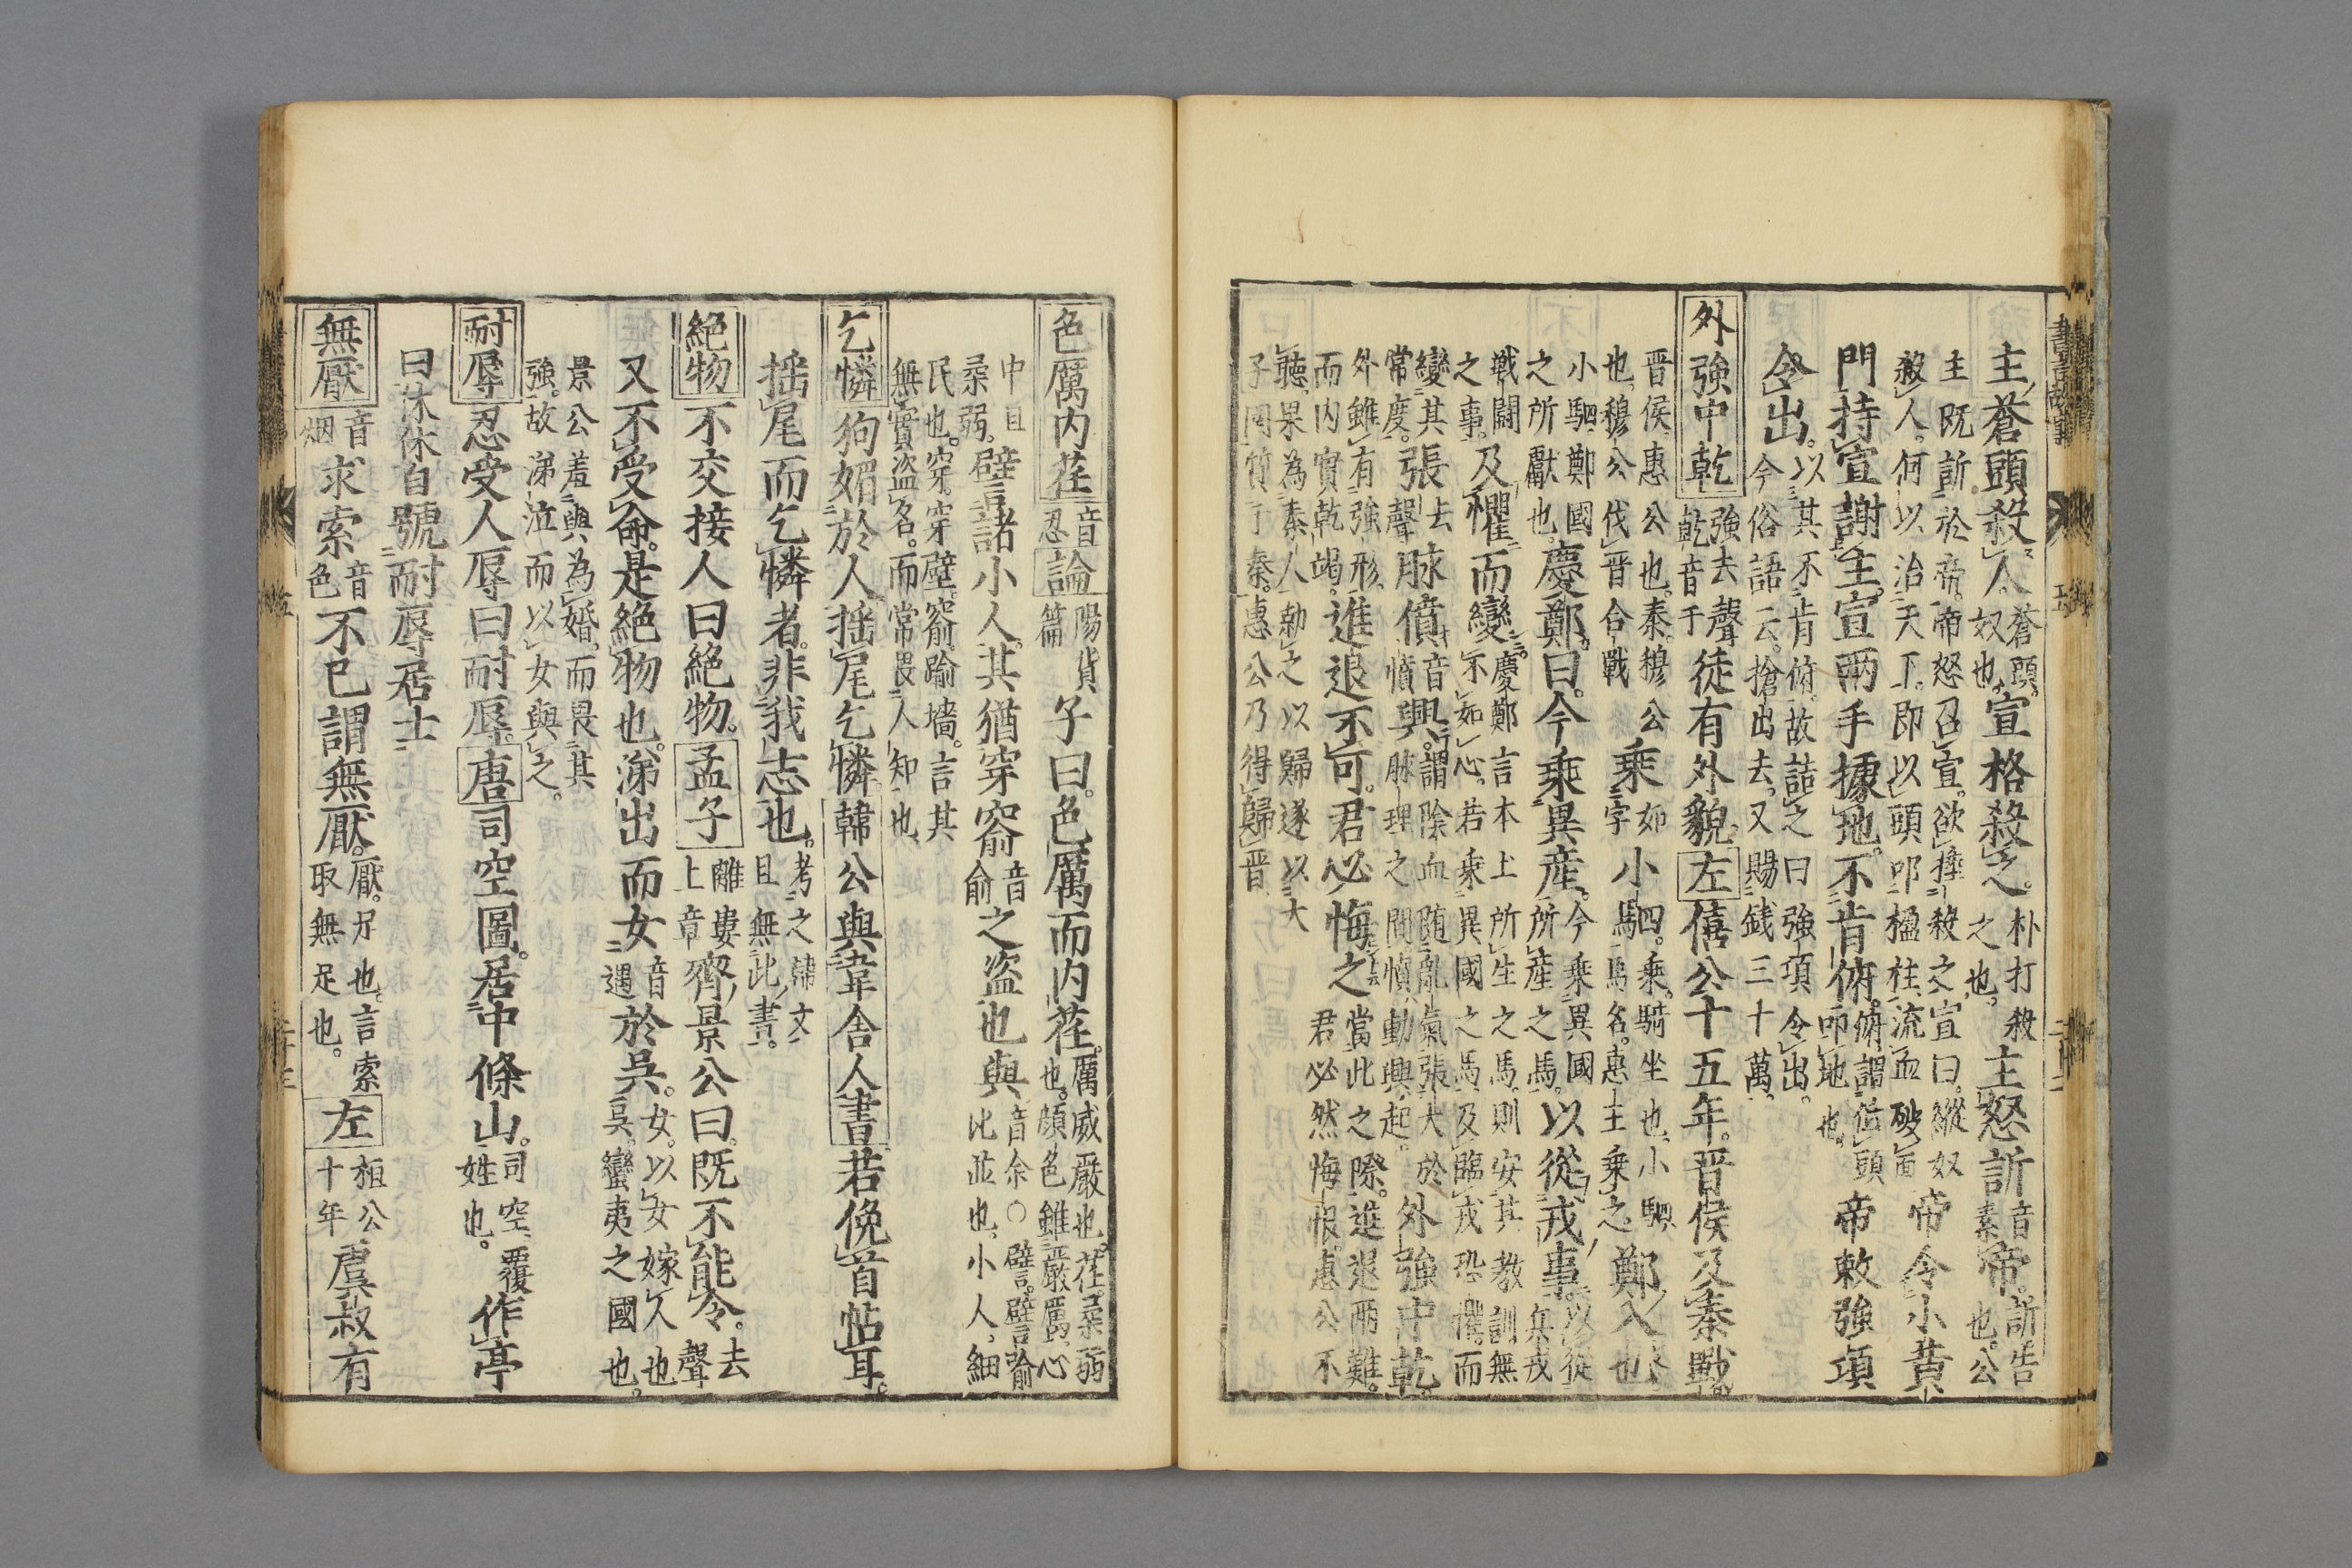 主蒼頭殺人蒼頭。奴也。宣格殺之。朴打殺之也。主怒訴音素帝。訴告也。公
主既訴於帝。帝怒召宣。欲捶殺之。宣曰。縱奴
殺人。何以治天下。即以頭叩楹柱流血破面帝令小黃
門持宣謝主。宣兩手據地。不肯俯。俯謂低頭叩地也。帝敕強項
令出。以其不肯俯。故詰之曰強項令出。
今俗語云。搶出去。又賜錢三十萬。
外強中乾強去聲乾音干徒有外貌。左僖公十五年。晉侯及秦戰。
晉侯惠公也。秦穆公
也。穆公伐晉合戰乘如字小駟四。乘騎坐也。小駟馬名。惠王乘之鄭入也。
小駟鄭國
之所獻也。慶鄭曰。今乘異産。今乘異國所産之馬。以從戎事。以從兵戎
戰鬪
之事。及懼而變。慶鄭言本土所生之馬。則安其教訓。無不如心。若乘異國之馬。及臨戎恐懼。而
變其
常度。張去聲脉僨音憤興。謂陰血隨亂氣張大於脉理之間憤動興起。外強中乾。
外雖有強形。
而内實乾竭。進退不可。君必悔之。當此之際。進退兩難。君必然悔恨。惠公不
聽。果為秦人勒之以歸遂以大
子圉質于秦。惠公乃得歸晉
色厲内荏音忍論陽貨篇子曰。色厲而内荏。厲威嚴也。荏柔弱也。顔色雖嚴厲。心
中且
柔弱。譬諸小人。其猶穿窬音俞之盜也與音余○譬。譬喻比並也。小人。細
民也。穿。穿壁。窬。踰墻。言其
無實盜名。而常畏人知也
乞憐狗媚於人。揺尾乞憐。韓公與韋舎人書。若俛首帖耳。
揺尾而乞憐者。非我志也。考之韓文且無此書。
絶物不交接人曰絶物。孟子離婁上章齊景公曰。既不能令。去聲
又不受命。是絶物也。涕出而女音遇於吳。女。以女嫁人也吳。蠻夷之國也。
景公羞與為婚。而畏其
強。故涕泣而以女與之。
耐辱忍受人辱曰耐辱。唐司空圖。居中條山。司空。覆姓也。作亭
曰休休自號耐辱居士
無厭音烟求索音色不已謂無厭。厭。足也。言索取無足也。左桓公十年虞叔有